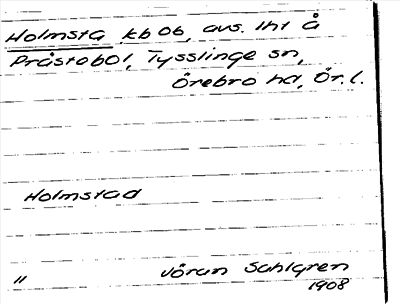 Holmsta kb 06, avs. lht å
Prästobol, Tysslinge sn,
Örebro hd, Ör. l.
Holmstad
" Jöran Sahlgren
1908